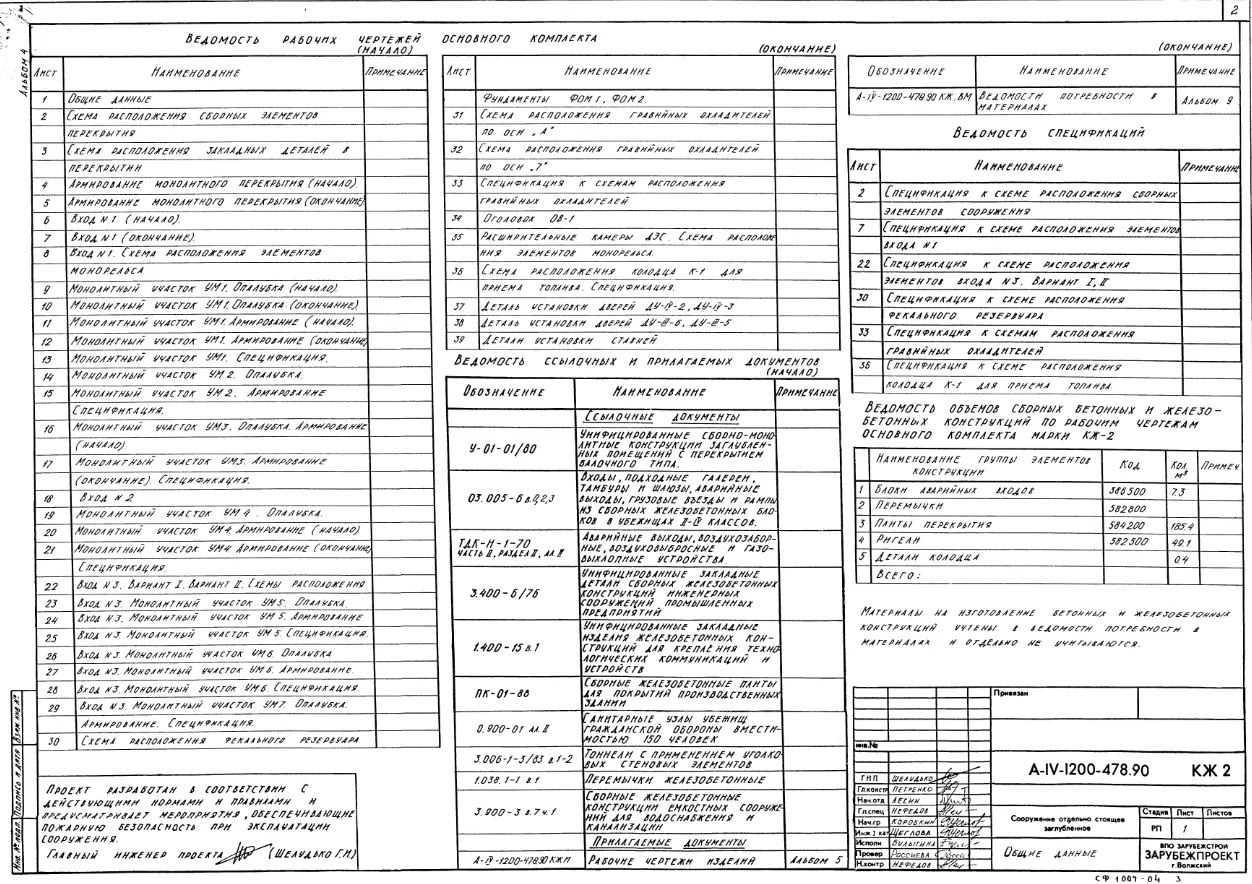 2
Альбом 4
Ведомость рабочих чертежей основного комплекта
(начало)
Лист Наименование Примечание
1 Общие данные
2 Схема расположения сборных элементов
перекрытия
3 Схема расположения закладных деталей в
перекрытии
4 Армирование монолитного перекрытия (начало).
5 Армирование монолитного перекрытия (окончание)
6 Вход N1 (начало).
7 Вход N1 (окончание).
8 Вход N1. Схема расположения элементов
монорельса
9 Монолитный участок УМ1. Опалубка (начало).
10 Монолитный участок УМ1. Опалубка. (окончание).
11 Монолитный участок УМ1. Армирование (начало).
12 Монолитный участок УМ1. Армирование (окончание)
13 Монолитный участок УМ1. Спецификация.
14 Монолитный участок УМ2. Опалубка.
15 Монолитный участок УМ2. Армирование
Спецификация.
16 Монолитный участок УМ3. Опалубка. Армирование
(начало)
17 Монолитный участок УМ3. Армирование
(окончание). Спецификация.
18 Вход N2
19 Монолитный участок УМ4. Опалубка.
20 Монолитный участок УМ4. Армирование (начало)
21 Монолитный участок УМ4. Армирование (окончание)
Спецификация.
22 Вход N3. Вариант I. Вариант II. Схемы расположения
23 Вход N3. Монолитный участок УМ5. Опалубка
24 Вход N3. Монолитный участок УМ5. Армирование
25 Вход N3. Монолитный участок УМ5. Спецификация.
26 Вход N3. Монолитный участок УМ6. Опалубка
27 Вход N3. Монолитный участок УМ6. Армирование.
28 Вход N3. Монолитный участок УМ6. Спецификация.
29 Вход N3. Монолитный участок УМ7. Опалубка.
Армирование. Спецификация.
30 Схема расположения фекального резервуара
Проект разработан в соответствии с
действующими нормами и правилами и
предусматривает мероприятия, обеспечивающие
пожарную безопасность при эксплуатации
сооружения.
Главный инженер проекта (Шелудько Г.И.)
Инв. № подл. Подпись и дата Взам инв №
(окончание)
Лист Наименование Примечание
Фундаменты ФОМ1, ФОМ2.
31 Схема расположения гравийных охладителей
по оси „А"
32 Схема расположения гравийных охладителей
по оси „7"
33 Спецификация к схемам расположения
гравийных охладителей
34 Оголовок ОВ-1
35 Расширительные камеры ДЭС. Схема расположе-
ния элементов монорельса.
36 Схема расположения колодца К-1 для
приема топлива. Спецификация.
37 Деталь установки дверей ДУ-IV-2, ДУ-IV-3
38 Деталь установки дверей ДУ-III-6, ДУ-III-5
39 Детали установки ставней
Ведомость ссылочных и прилагаемых документов
(начало)
Обозначение Наименование Примечание
Ссылочные документы
У-01-01/80 Унифицированные сборно-моно-
литные конструкции заглублен-
ных помещений с перекрытием
балочного типа.
03.005-6 в.0,2,3 Входы, подходные галереи,
тамбуры и шлюзы, аварийные
выходы, грузовые въезды и рампы
из сборных железобетонных бло-
ков в убежищах II-IV классов.
ТДК-Н-1-70 Аварийные выходы, воздухозабор-
часть II, раздел II, ал. II ные, воздуховыбросные и газо-
выхлопные устройства.
3.400-6/76 Унифицированные закладные
детали сборных железобетонных
конструкций инженерных
сооружений промышленных
предприятий
1.400-15 в.1 Унифицированные закладные
изделия железобетонных кон-
струкций для крепления техно
логических коммуникаций и
устройств
ПК-01-88 Сборные железобетонные плиты
для покрытий производственных
зданий
0.900-01 ал. II Санитарные узлы убежищ
гражданской обороны вмести-
мостью 150 человек
3.006-1-3/83 в.1-2 Тоннели с применением уголко
вых стеновых элементов
1.038.1-1 в.1 Перемычки железобетонные
3.900-3 в.7 ч.1 Сборные железобетонные
конструкции емкостных сооруже
ний для водоснабжения и
канализации
Прилагаемые документы
А-IV-1200-478.90 КЖИ Рабочие чертежи изделий Альбом 5
(окончание)
Обозначение Наименование Примечание
А-IV-1200-478.90 КЖ.ВМ Ведомости потребности в Альбом 9
материалах
Ведомость спецификаций
Лист Наименование Примечание
2 Спецификация к схеме расположения сборных
элементов сооружения
7 Спецификация к схеме расположения элементов
входа N1
22 Спецификация к схеме расположения
элементов входа N3. Вариант I, II
30 Спецификация к схеме расположения
фекального резервуара
33 Спецификация к схемам расположения
гравийных охладителей
36 Спецификация к схеме расположения
колодца К-1 для приема топлива.
Ведомость объемов сборных бетонных и железо-
бетонных конструкций по рабочим чертежам
основного комплекта марки КЖ-2
Наименование группы элементов конструкции Код Кол. м³ Примеч
1 Блоки аварийных входов 586500 7.3
2 Перемычки 582800
3 Плиты перекрытия 584200 185.4
4 Ригели 582500 49.1
5 Детали колодца 0.4
Всего:
Материалы на изготовление бетонных и железобетонных
конструкций учтены в ведомости потребности в
материалах и отдельно не учитываются.
Привязан
инв.№
ГИП Шелудько
Гл.констр Петренко
Нач.отд Лесин
Гл.спец Нефедов
Нач.гр Коровкин
Инж 1 кат Щеглова
Исполн Булыгина
Провер Рассиева
Н.контр Нефедов
А-IV-1200-478.90 КЖ 2
Сооружение отдельно стоящее
заглубленное
Стадия Лист Листов
РП 1
Общие данные
ВПО ЗАРУБЕЖСТРОЙ
ЗАРУБЕЖПРОЕКТ
г.Волжский
СФ 1007-04 3